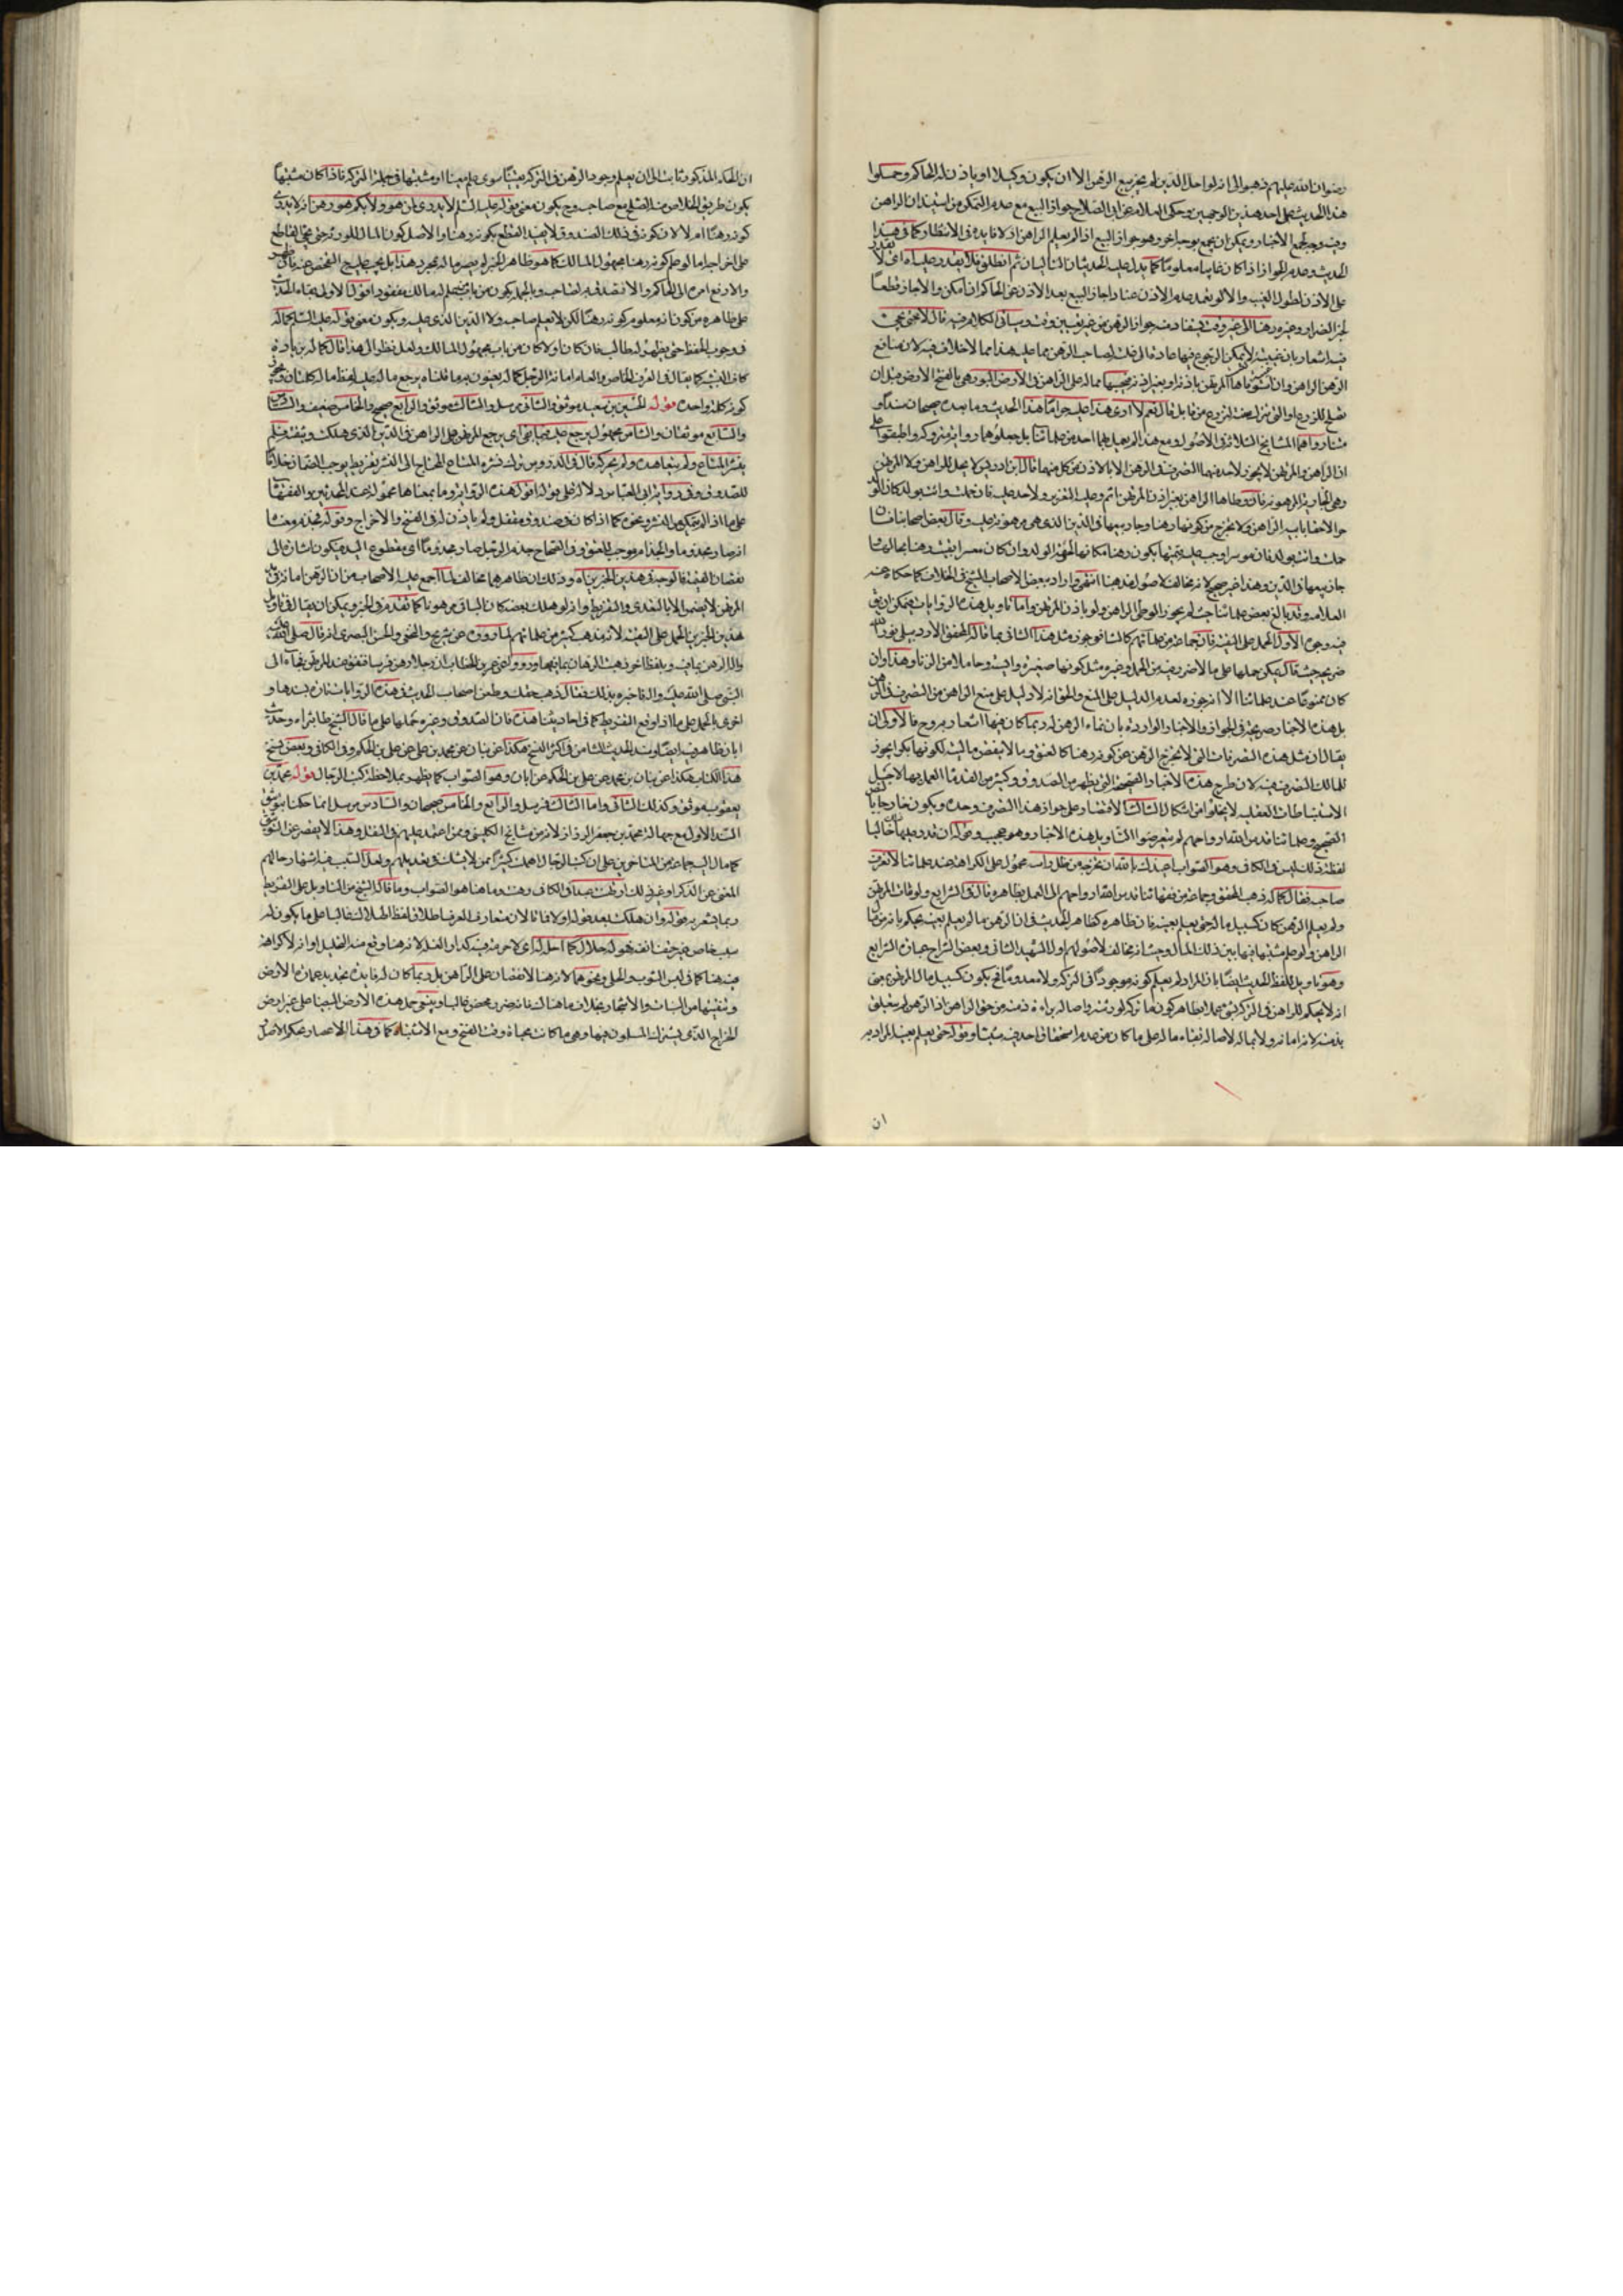 رضوان الله عليهم ذهبوا الى انه لو احل الدين لم يجز بيع الرهن الا ان يكون وكيلا او ياذن له الحاكم وحملوا
هذا الحديث على احد هذين الوجهين وحكى العلامة عن ابي الصلاح جواز البيع مع عدم التمكن من استيذان الراهن
وفيه وجه لجمع الاخبار ويمكن ان يجمع بوجه اخر وهو جواز البيع اذا لم يعلم الراهن اذ لا فايدة في الانتظار كما في هذا
الحديث وعدم الجواز اذا كان غايبا معلوما كما يدل عليه الحديثان التاليان ثم انطلق فلا يقدر عليه اي لا يقدر
على الاذن لطول الغيب والا لو بعد عدم الاذن عنادا جاز البيع بعد الاذن عن الحاكم ان امكن والا جاز قطعا
لجبر الضرار وغيره رهنا الى غير وقت يستفاد منه جواز الرهن من غير تعيين وقت وسياتي الكلام فيه قال لا حتى يجئ
فيه اشعار بان غيبته لا يمكن الرجوع فيها عادة قال قلت لصاحب الرهن مما عليه هذا مما لا خلاف فيه لان منافع
الرهن للراهن وان استوفاها المرتهن باذنه او بغير اذنه فيحسبها مماله على الراهن في الارض البور هي بالفتح الارض قبل ان
تصلح للزرع او التي تترك سنة لتزرع من قابل قال نعم لا ارى هذا عليه حراما هذا الحديث وما بعده صحيحان سندا و
متنا رواهما المشايخ الثلاثة في الاصول ومع هذا لم يعمل بهما احد من علمائنا بل جعلوهما رواية متروكة واطبقوا على
ان الراهن والمرتهن لا يجوز لاحد منهما التصرف في الرهن الا بالاذن من كل منهما قال ابن ادريس لا يحل للراهن ولا المرتهن
وطي الجارية المرهونة فان وطاها الراهن بغير اذن المرتهن اثم وعليه التعزير ولا حد عليه فان حملت واتت بولد كان الولد
حرا لاحقا بابيه الراهن ولا تخرج من كونها رهنا وجاز بيعها في الدين الذي هي مرهونة عليه وقال بعض اصحابنا ان
حملت واتت بولد فان موسرا وجب عليه قيمتها يكون رهنا مكانها لحرمة الولد وان كان معسرا بقيت رهنا بحالها
جاز بيعها في الدين وهذا غير صحيح لانه مخالف لاصول مذهبنا انتهى واراد ببعض الاصحاب الشيخ في الخلاف كما حكاه عنه
العلامة وقد بالغ بعض علمائنا حيث لم يجوز الوطي للراهن ولو باذن المرتهن واما تاويل هذه الروايات فيمكن ان يقال
فيه وجوه الاول الحمل على التقية فان جماعة من علمائهم كالشافعي جوز مثل هذا الثاني مما قاله المحقق الاردبيلي نور الله
ضريحه حيث قال يمكن حملها على ما لا ضرر فيه من الحمل وغيره مثل كونها صغيرة وايسة وحاملا من الزنا وهذا وان
كان ممنوعا عند علمائنا الا انه جوزه لعدم الدليل على المنع والحق انه لا دليل على منع الراهن من التصرف في الرهن
بل هذه الاخبار صريحة في الجواز والاخبار الواردة بان نماء الرهن له ربما كان فيها اشعار به وح فالاولى ان
يقال ان مثل هذه التصرفات التي لا تخرج الرهن عن كونه رهنا كالعتق وما لا ينقص ماليته لكونها بكرا يجوز
للمالك التصرف فيه لان طرح هذه الاخبار الصحيحة التي يظهر من الصدوق وكثير من القدماء العمل بها لاجل
الاستنباطات العقلية لا يخلو من اشكال الثالث الاقتصار على جواز هذا التصرف وحده ويكون خارجا بالنص
الصحيح وعلمائنا قدس الله ارواحهم لم يتعرضوا لتاويل هذه الاخبار وهو عجيب وقوله ان قدر عليها خاليا
لفظة ذلك ليس في الكافي وهو الصواب
صاحبه فقال كماله ذهب المحقق وجماعة من فقهائنا قدس الله ارواحهم الى العمل بظاهره قال في الشرايع ولو مات المرتهن
ولم يعلم الرهن كان كسبيل ماله حتى يعلم بعينه فان ظاهره كظاهر الحديث في ان الرهن ما لم يعلم بعينه يحكم بانه من مال
الراهن ولو علم مشتبها فيها بين ذلك المال وحيث انه مخالف لاصولهم اول الشهيد الثاني وبعض شراح عبارة الشرايع
وهو تاويل للفظ الحديث ايضا بان المراد لم يعلم كونه موجودا في التركة ولا معدوما فح يكون كسبيل مال المرتهن بمعنى
انه لا يحكم للراهن في التركة بشئ عملا بظاهر كون ما تركه لورثته واصالة براءة ذمته من حق الراهن اذ الرهن لم يتعلق
بذمته لانه امانة ولا بماله لاصالة بقاء ماله على ما كان من عدم استحقاق احد فيه شيئا وقوله حتى يعلم بعينه المراد به
ان
ان الحكم المذكور ثابت الى ان يعلم وجود الرهن في التركة يقينا سوى علم معينا او مشتبها في جملة التركة فاذا كان مشتبها
يكون طريق الخلاص منه الصلح مع صاحبه وح يكون معنى قوله عليه السلام لا يدرى لمن هو ولا بكم هو رهن انه لا يدرى
كونه رهنا ام لا لان كونه في ذلك الصندوق لا يفيد القطع بكونه رهنا والاصل كون المال للمورث حتى يجئ القاطع
على اخراجه اما لو علم كونه رهنا مجهول المالك كما هو ظاهر الخبر لم يصر ماله بمجرد هذا بل يجب عليه ح التفحص عنه فان ظهر
والا رفع امره الى الحاكم والا تصدق به لصاحبه وبالجملة يكون من باب ما علم له مالك مفقود اقول الاولى بقاء الحديث
على ظاهره من كونه انه معلوم كونه رهنا لكن لا يعلم صاحبه ولا الدين الذي عليه ويكون معنى قوله عليه السلم كماله
في وجوب الحفظ حتى يظهر له مطالب فان كان والا كان من باب مجهول المالك ولعل نظره الى هذا قال كماله بزيادة
كاف التشبيه كما يقال في العرف الخاص والعام امانة الرجل كماله يعنون به ما قلناه يرجع ماله عليه لفظ ماله كلمتان ويجوز
كونه كلمة واحدة قوله الحسين بن سعيد موثق والثاني مرسل والثالث موثق والرابع صحيح والخامس ضعيف والسادس
والسابع موثقان والثامن مجهول يرجع عليه فيما بقي اي يرجع المرتهن على الراهن في الدين الذي هلكت وثيقته
ينشر المتاع ولم يتعاهده ولم يحركه قال في الدروس ترك نشره المتاع المحتاج الى النشر تفريط يوجب الضمان خلافا
للصدوق وفي رواية ابي العباس دلالة على قوله اقول هذه الرواية وما بمعناها محمولة عند المحدثين والفقهاء
على ما اذا لم يتمكن من النشر ونحوه كما اذا كان في صندوق مقفل ولم ياذن له في الفتح والاخراج وقوله فجذم معناه
انه صار مجذوما والجذام موجب للعتق وفي الصحاح جذم الرجل صار مجذوما اي مقطوع اليد فيكون اشارة الى
نقصان القيمة فالوجه في هذين الخبرين اه وذلك ان ظاهرهما مخالف لما اجمع عليه الاصحاب من ان الرهن امانة في يد
المرتهن لا يضمن الا بالتعدي والتفريط وانه لو هلك بعضه كان الباقي مرهونا كما تقدم في الخبر ويمكن ان يقال في تاويل
هذين الخبرين الحمل على التقية لانه مذهب كثير من علمائهم لما رووه عن شريح والنخعي والحسن البصري انه قال صلى الله عليه
واله الرهن بما فيه وبلفظ اخر ذهبت الرهان بما فيها ورووا عن عمر بن الخطاب ان رجلا رهن فرسا فنفق عند المرتهن فجاء الى
النبي صلى الله عليه واله فاخبره بذلك فقال ذهب حقك وطعن اصحاب الحديث في هذه الروايات تارة بسندها و
اخرى بالحمل على ما اذا وقع التفريط كما في احاديثنا هذه فان الصدوق وغيره حملها على ما قال الشيخ طاب ثراه وحديث
ابان ظاهر فيه ايضا وسند الحديث الثامن في اكثر النسخ هكذا عن بنان عن محمد بن علي عن علي بن الحكم وفي الكافي وبعض نسخ
هذا الكتاب هكذا عن بنان بن محمد عن علي بن الحكم عن ابان وهو الصواب كما يظهر بملاحظة كتب الرجال قوله محمد بن
يعقوب موثق وكذلك الثاني واما الثالث فمرسل والرابع والخامس صحيحان والسادس مرسل انما حكمنا بتوثيق
السند الاول مع جهالة محمد بن جعفر الرزاز لانه من مشايخ الكليني وممن اعتمد عليهم في النقل وهذا لا يقصر عن التوثيق
كما مال اليه جماعة من المتاخرين على ان كتب الرجال اهملت كثيرا ممن لا يشك في تعديلهم ولعل السبب فيه اشتهار حالهم
المغني عن الذكر او غير ذلك
ربما يشعر به قوله وان هلكت بعد قوله او لا فانا لان متعارف العرف اطلاق لفظ الهلاك غالبا على ما يكون له
سبب خاص غير حتف انفه هو له حلال كما احل له اي لا حرمة فيه كدار الغلة لانه هنا وقع منه التحليل او انه لا كراهة
فيه هنا كما في لبس الثوب والحلي ونحوهما لانه هنا لا نقصان على الراهن بل ربما كان له فايدة بتجديد عمارة الارض
وتنقيتها من النبات والاشجار بخلاف ما هناك فانه ضرر محض غالبا وينبغي حمل هذه الارض البيضاء على غير ارض
الخراج الذي يشترك المسلمون فيها وهي ما كانت محياة وقت الفتح ومع الاشتباه كما في هذا الاعصار يحكم الاصل